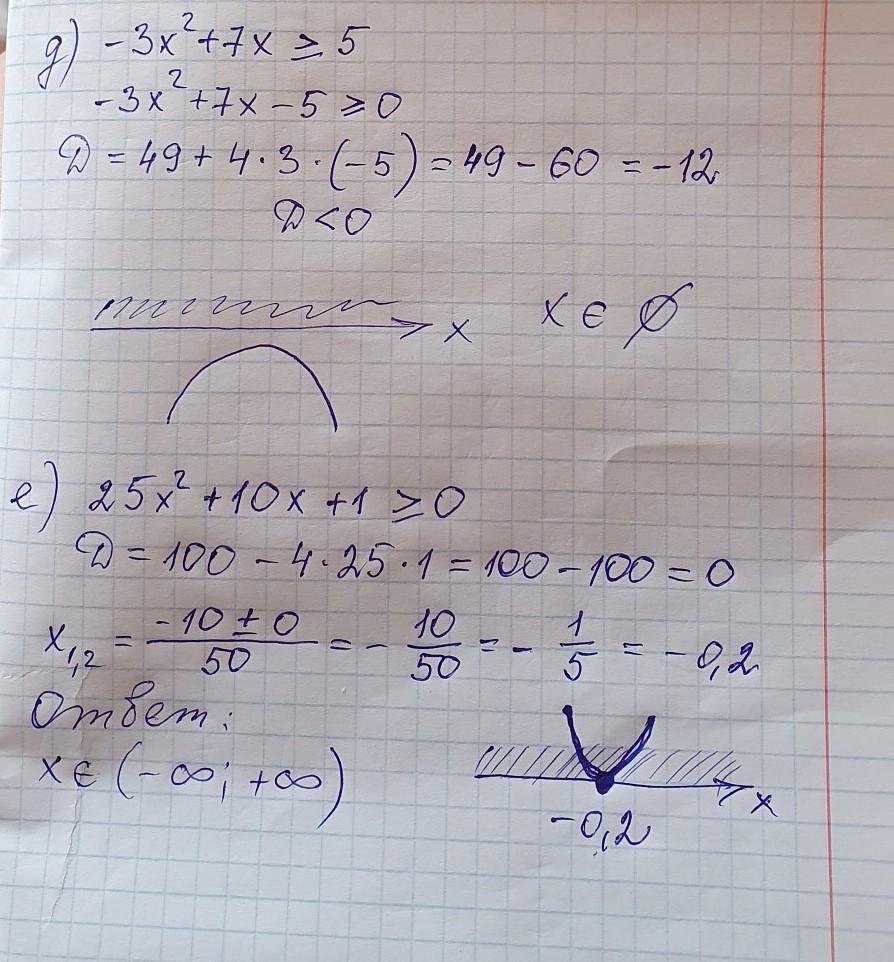 д) -3x²+7x ≥ 5
-3x²+7x-5 ≥ 0
D = 49 + 4·3·(-5) = 49 - 60 = -12
D < 0
x
x ∈ ∅
е) 25x² + 10x + 1 ≥ 0
D = 100 - 4·25·1 = 100 - 100 = 0
x₁,₂ = (-10 ± 0)/50 = - 10/50 = - 1/5 = -0,2
Ответ:
x ∈ (-∞; +∞)
x
-0,2